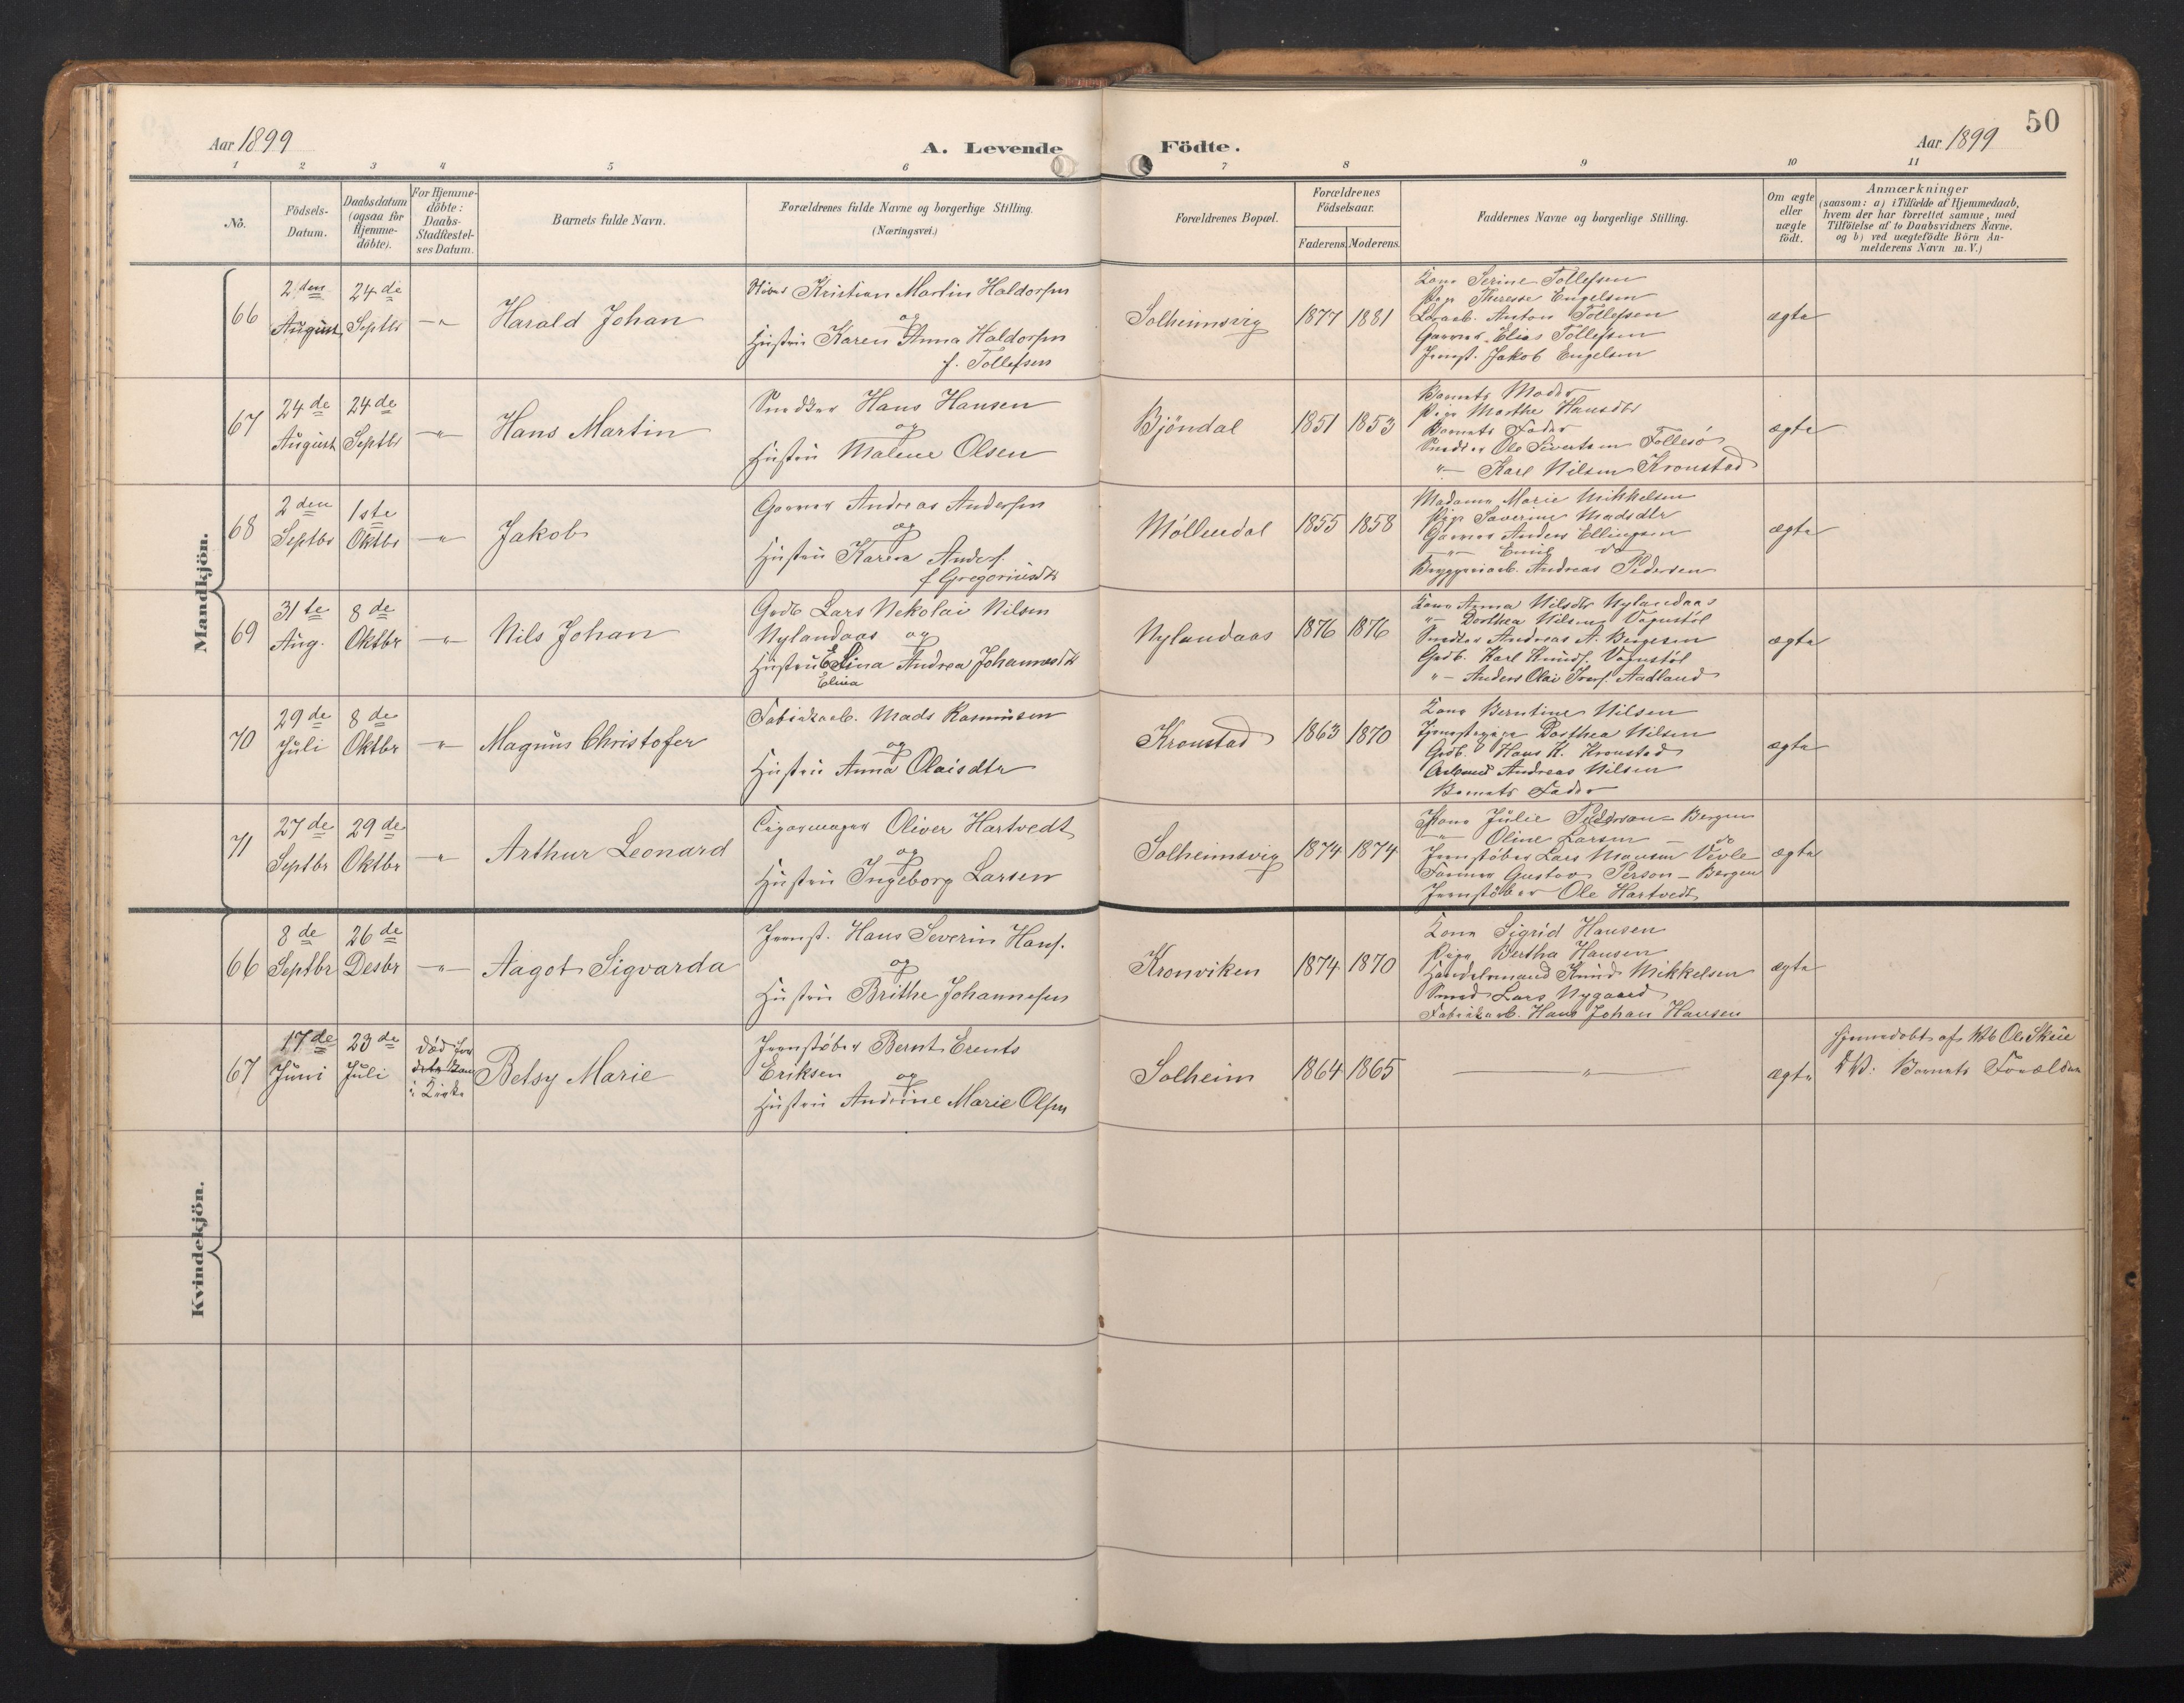 50
Aar 1899
A. Levende Födte.
Aar 1899
1 2 3 4 5 6 7 8 9 10 11
No.
Födsels-Datum.
Daabsdatum (ogsaa for Hjemme-döbte).
For Hjemme-döbte: Daabs-Stadfæstel-ses Datum.
Barnets fulde Navn.
Forældrenes fulde Navne og borgerlige Stilling. (Næringsvei.)
Forældrenes Bopæl.
Forældrenes Födselsaar.
Faderens. Moderens.
Faddernes Navne og borgerlige Stilling.
Om ægte eller uægte födt.
Anmærkninger
(saasom: a) i Tilfælde af Hjemmedaab,
hvem der har forrettet samme, med
Tilföielse af to Daabsvidners Navne.
og b) ved uægtefödte Börn An-
melderens Navn m. V.)
Mandkjön.
66
2den August
24de Septbr
-"-
Harald Johan
Kristian Martin Haldorsen
og
Hustru Karen Anna Haldorsen
f. Tollefsen
Solheimsvig
1877 1881
Kone Serine Tollefsen
Pige Therese Engelsen
Anton Tollefsen
Garver Elias Tollefsen
Jernst. Jakob Engelsen
ægte
67
24de August
24de Septbr
-"-
Hans Martin
Snedker Hans Hansen
og
Hustru Malene Olsen
Bjöndal
1851 1853
Barnets Moder
Pige Marthe Hansdtr
Barnets Fader
Snedker Ole Sivertsen Follesö
"- Karl Nilsen Kronstad
ægte
68
2den Septbr
1ste Oktbr
-"-
Jakob
Garver Andreas Andersen
og
Hustru Karen Anders.
f Gregoriusdtr
Möllendal
1855 1858
Madame Marie Mikkelsen
Pige Severine Madsdtr
Garver Anders Ellingsen
-"- Emil do
Bryggeriarb. Andreas Pedersen
ægte
69
31te Aug.
8de Oktbr
-"-
Nils Johan
Grdb Lars Nekolai Nilsen
Nylandaas og
Hustru Elina Andrea Johannesdtr
Elina
Nylandaas
1876 1876
Kone Anna Nilsdtr Nylandaas
"- Dorthea Nilsen Vognstöl
Snedker Andreas A. Bergesen
Grdb. Karl Knuds. Vognstöl
"- Anders Olai Ivers. Aadland
ægte
70
29de Juli
8de Oktbr
-"-
Magnus Christofer
Fabrikarb. Mads Rasmusen
og
Hustru Anna Olaisdtr
Kronstad
1863 1870
Kone Berntine Nilsen
Tjenestepige Dorthea Nilsen
Grdb. Hans K. Kronstad
Arbmd Andreas Nilsen
Barnets Fader
ægte
71
27de Septbr
29de Oktbr
-"-
Arthur Leonard
Cigarmager Oliver Hartvedt
og
Hustru Ingeborg Larsen
Solheimsvig
1874 1874
Kone Julie Pederson - Bergen
-"- Oline Larsen - do
Jernstöber Lars Monsen Vevle
Former Gustav Person - Bergen
Jernstöber Ole Hartvedt
ægte
Kvindekjön.
66
8de Septbr
26de Desbr
-"-
Aagot Sigvarda
Jernst. Hans Severin Hans.
og
Hustru Brithe Johannesen
Kronviken
1874 1870
Kone Sigrid Hansen
Pige Bertha Hansen
Handelsmand Knud Mikkelsen
Smed Lars Nygaard
Fabrikarb. Hans Johan Hansen
ægte
67
17de Juni
23de Juli
död för
i Kirke
Betsy Marie
Jernstöber Bernt Erents
Eriksen og
Hustru Andrine Marie Olsen
Solheim
1864 1865
-"-
ægte
Hjemmedöbt af Ole Skeie
DV. Barnets Forældre